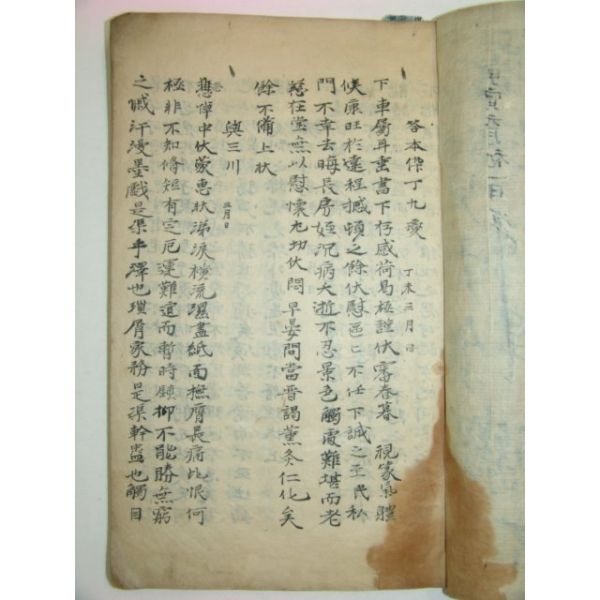 答本倅丁九愛 丁未三月日
下車屬耳垂書下存感荷曷極謹伏審春暮 視篆氣體
候康旺於遠程撼頓之餘伏慰區區不任下誠之至民私
門不幸去晦長房姪沉病大逝不忍景色觸處難堪而老
慈在堂無以慰懷尤切伏悶早晏間當晉謁薰炙仁化矣
餘不備上狀
與三川 三月日
悲悼中伏蒙惠狀涕淚橫流濕盡紙面撫膺長痛此恨何
極非不知脩短有定厄運難逭而暫時顧抑不能勝無窮
之慽汗漫墨戲是渠手澤也瑣屑家務是渠幹蠱也觸目